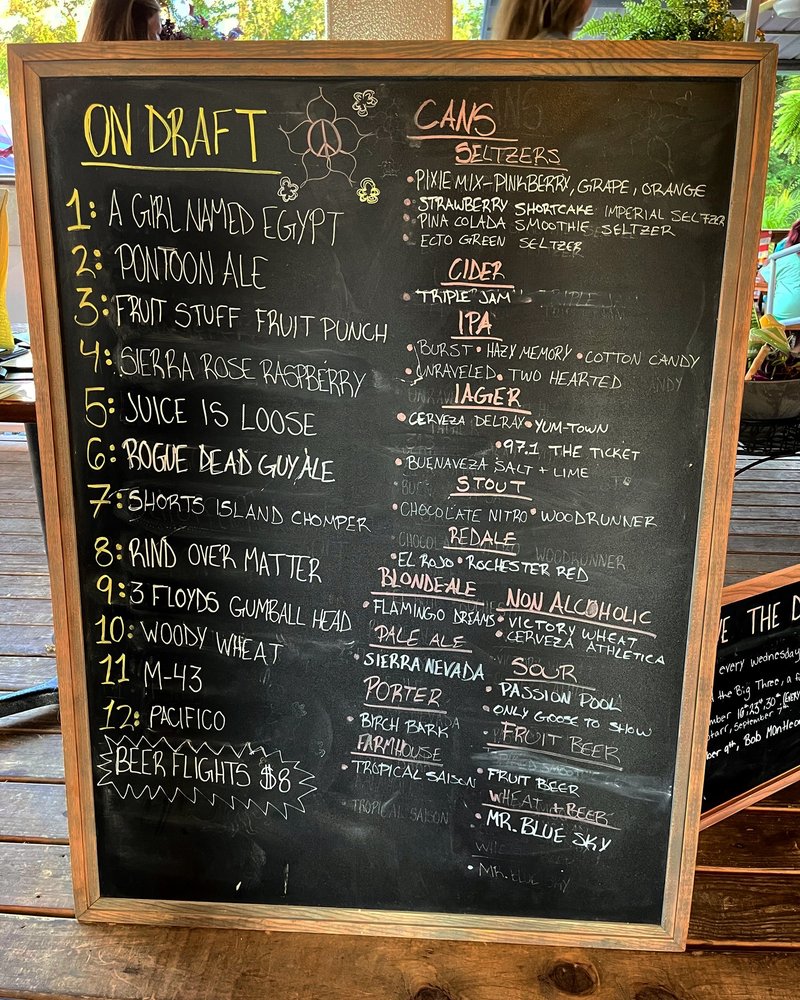 ON DRAFT
1: A GIRL NAMED EGYPT
2: PONTOON ALE
3: FRUIT STUFF FRUIT PUNCH
4: SIERRA ROSE RASPBERRY
5: JUICE IS LOOSE
6: ROGUE DEAD GUY ALE
7: SHORTS ISLAND CHOMPER
8: RIND OVER MATTER
9: 3 FLOYDS GUMBALL HEAD
10: WOODY WHEAT
11 M-43
12: PACIFICO
BEER FLIGHTS $8
CANS
SELTZERS
• PIXIE MIX - PINKBERRY, GRAPE, ORANGE
• STRAWBERRY SHORTCAKE IMPERIAL SELTZER
• PINA COLADA SMOOTHIE SELTZER
• ECTO GREEN SELTZER
CIDER
• "TRIPLE JAM"
IPA
• BURST • HAZY MEMORY • COTTON CANDY
• UNRAVELED • TWO HEARTED
LAGER
• CERVEZA DELRAY • YUM-TOWN
• 97.1 THE TICKET
• BUENAVEZA SALT + LIME
STOUT
• CHOCOLATE NITRO • WOODRUNNER
RED ALE
• EL ROJO • ROCHESTER RED
BLONDE ALE
• FLAMINGO DREAMS
PALE ALE
• SIERRA NEVADA
PORTER
• BIRCH BARK
FARMHOUSE
• TROPICAL SAISON
NON ALCOHOLIC
• VICTORY WHEAT
• CERVEZA ATHLETICA
SOUR
• PASSION POOL
• ONLY GOOSE TO SHOW
FRUIT BEER
• FRUIT BEER
WHEAT + BEER
• MR. BLUE SKY
E THE D
every Wednesday
the Big Three, a f
starr, September 7th
ber 9th, Bob Monteo